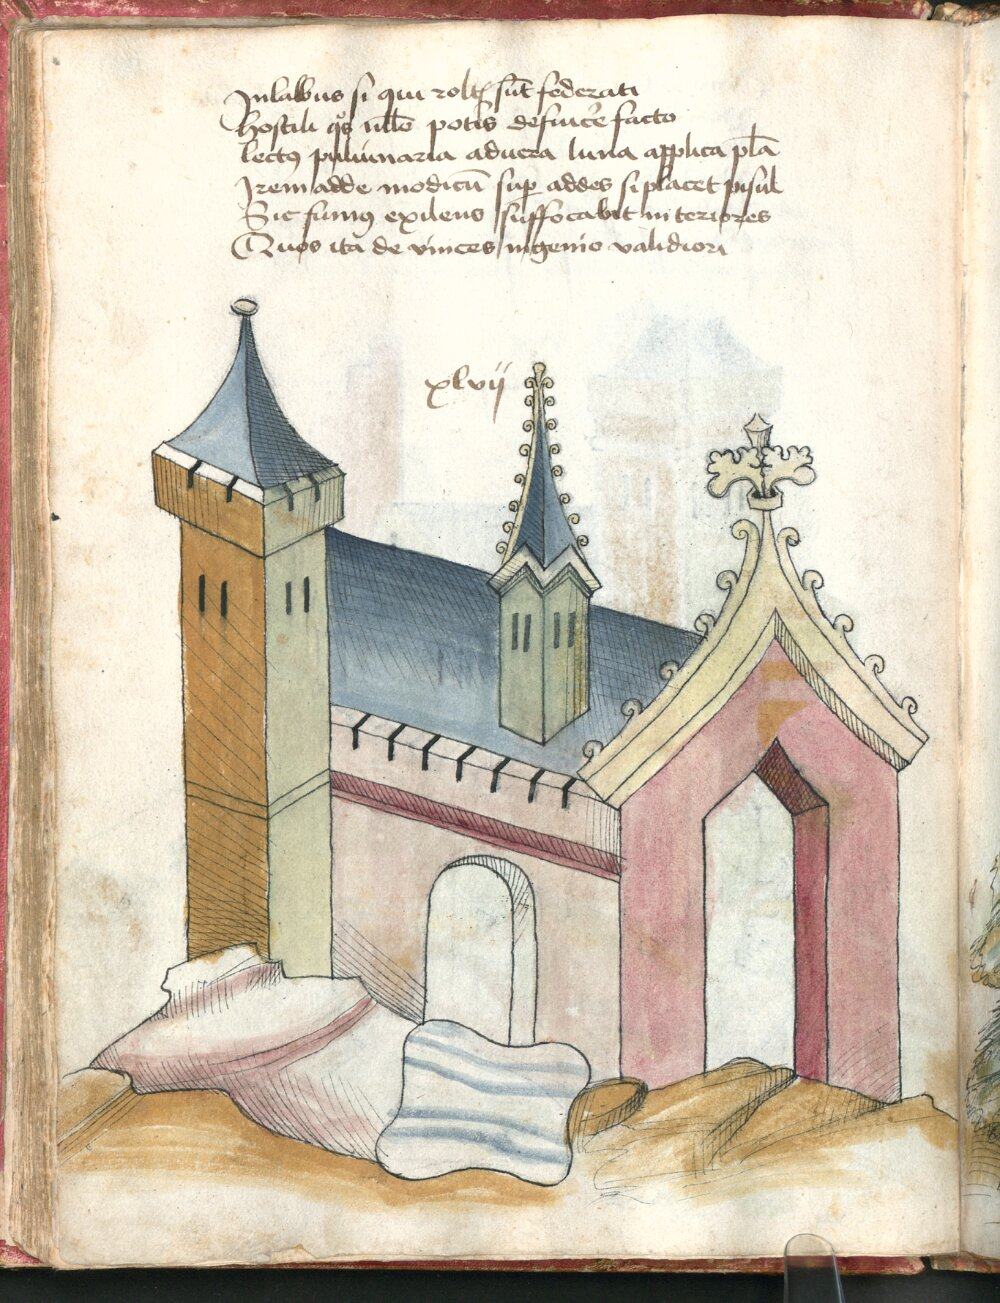 Inlabus si qui volt sūt federati
Hostili q̊s nllo potis defnice facto
lectꝫ puluinaria aduera luna applica pla
Item adde modicū sup addes si placet pisul
Sic fumꝯ exilens suffocabit interiores
Quos ita de vinces ingenio validiori
xlvij